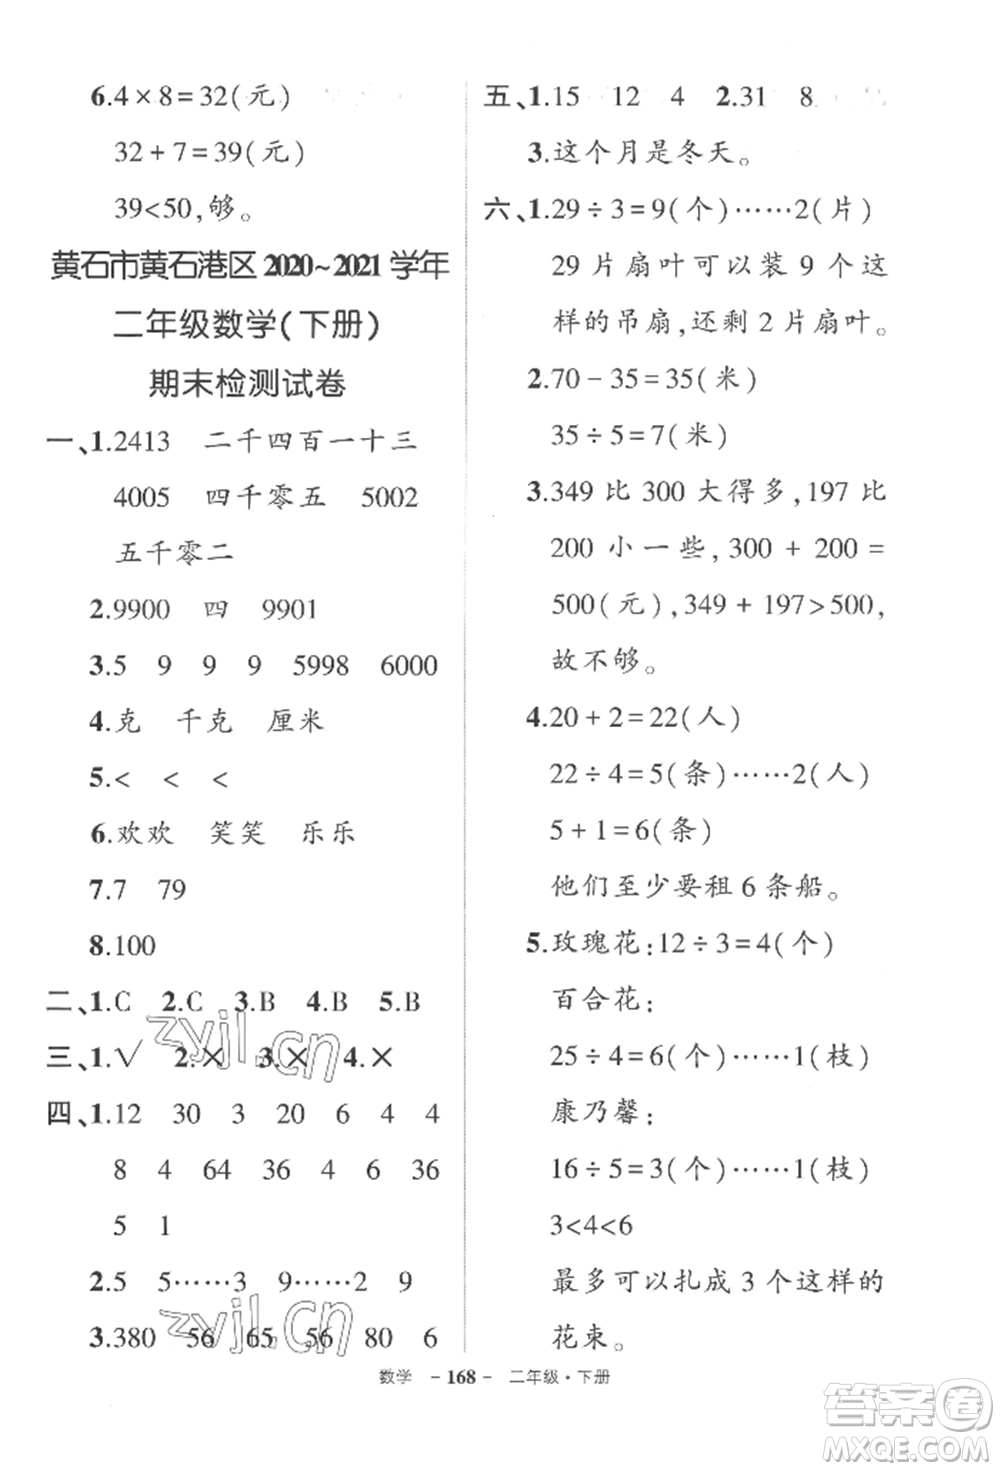 6.4×8=32(元)
32+7=39(元)
39<50,够。
黄石市黄石港区2020~2021学年
二年级数学(下册)
期末检测试卷
一、1.2413 二千四百一十三
4005 四千零五 5002
五千零二
2.9900 四 9901
3.5 9 9 9 5998 6000
4.克 千克 厘米
5.< < <
6.欢欢 笑笑 乐乐
7.7 79
8.100
二、1.C 2.C 3.B 4.B 5.B
三、1.√ 2.× 3.× 4.×
四、1.12 30 3 20 6 4 4
8 4 64 36 4 6 36
5 1
2.5 5……3 9……2 9
3.380 56 65 56 80 6
五、1.15 12 4 2.31 8
3.这个月是冬天。
六、1.29÷3=9(个)……2(片)
29片扇叶可以装9个这
样的吊扇,还剩2片扇叶。
2.70-35=35(米)
35÷5=7(米)
3.349比300大得多,197比
200小一些,300+200=
500(元),349+197>500,
故不够。
4.20+2=22(人)
22÷4=5(条)……2(人)
5+1=6(条)
他们至少要租6条船。
5.玫瑰花:12÷3=4(个)
百合花:
25÷4=6(个)……1(枝)
康乃馨:
16÷5=3(个)……1(枝)
3<4<6
最多可以扎成3个这样的
花束。
数学 -168- 二年级·下册
zyjl.cn
zyjl.cn
答案圈
MXQE.COM